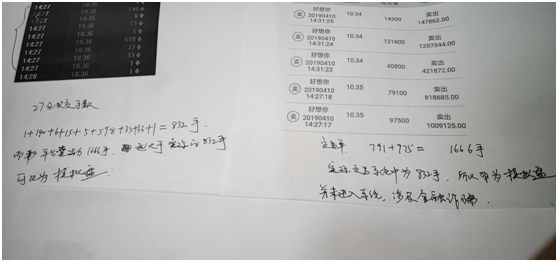 14:27 10.36 6
14:27 10.36 15
14:27 10.36 5
14:27 598
14:27 10.36 33
14:27 10.36 33
14:28 10.36 1
27分成交手数
1+140+6+15+5+598+33+33+1=832手.
远大于实际的832手
可认为模拟盘
卖 好想你 20190410 14:31:25 10.34 14300 卖出 147862.00
卖 好想你 20190410 14:31:24 10.34 121600 卖出 1257344.00
卖 好想你 20190410 14:31:23 10.34 40800 卖出 421872.00
卖 好想你 20190410 14:27:18 10.35 79100 卖出 818685.00
卖 好想你 20190410 14:27:17 10.35 97500 卖出 1009125.00
交易单 791+975= 1666手
实际交易系统中为832手. 所以即为模拟盘
并未进入系统, 涉及金融诈骗.